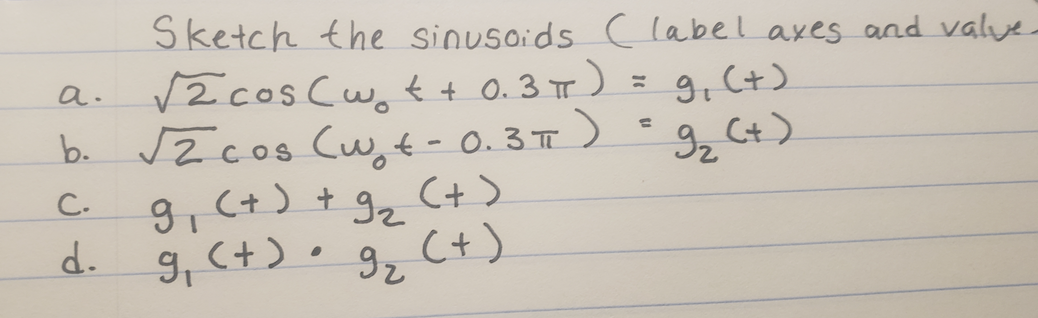 Sketch the sinusoids ( label axes and value
a. √2 cos(ω₀ t + 0.3π) = g₁(t)
b. √2 cos(ω₀t - 0.3π) = g₂(t)
c. g₁(t) + g₂(t)
d. g₁(t) • g₂(t)